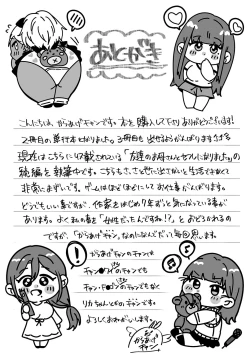 あとがき
こんにちは、からあげチャンです。本を購入して下さりありがとうございます!
2冊目の単行本となりました。3冊目も出せるようがんばります
現在はこちらに収載されている「友達のお母さんとセフレになりました」の
続編を執筆中です。こちらも、さっさと出さないと生活できなくて
非常にまずいです。ゲームはほどほどにしてお仕事がんばります。
どうでもいい事ですが、作家をはじめて年ずっと気になっている事が
あります。よく私の事を「女性だったんですね!?」とおどろかれるの
ですが、「からあげチャン」なのになんでだって毎回思います。
からあげチャンのチャンは
チャン
チャンでも
チャン
チャンでもなく
リカちゃんとかのチャンです。
よろしくおねがいします。
からあげチャン